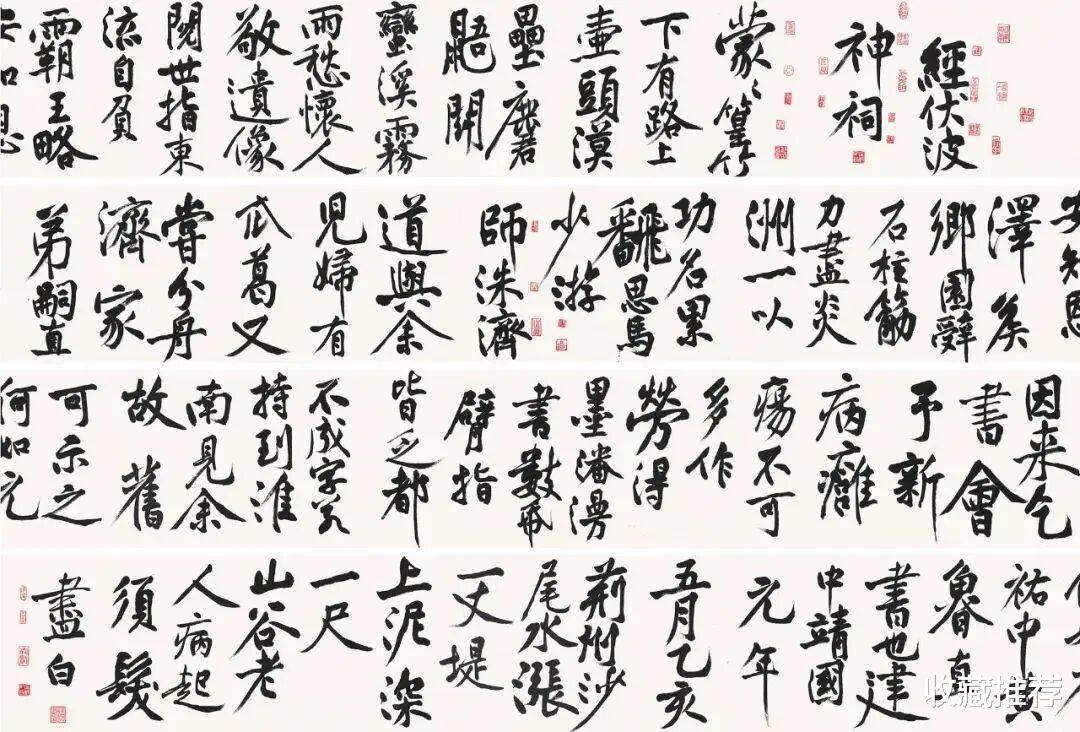 經伏波
神祠
蒙々篁竹
下有路上
壺頭漢
壘麏
鼯鬭
蠻溪霧
雨愁懷人
敬遺像
閱世指東
流自負
霸王略
安知恩
安知恩
澤矦
鄉園辭
石柱筋
力盡炎
洲一以
功名累
翻思馬
少游
師洙濟
道與余
兒婦有
瓜葛又
嘗分舟
濟家
弟嗣直
因来乞
書會
予新
病癰
瘍不可
多作
勞得
墨瀋漫
書數帋
臂指
皆乏都
不成字若
持到淮
南見余
故舊
可示之
何如元
何如元
祐中黃
魯直
書也建
中靖國
元年
五月乙亥
荊州沙
尾水漲
一丈堤
上泥深
一尺
山谷老
人病起
須髮
盡白
收藏推荐